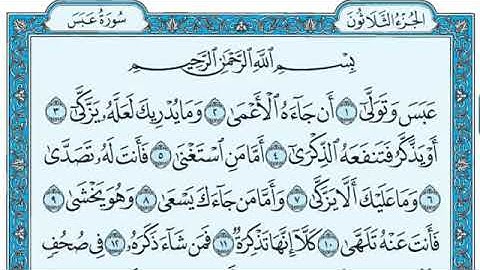 الجزء الثلاثون
سورة عبس
بِسْمِ ٱللَّهِ ٱلرَّحْمَٰنِ ٱلرَّحِيمِ
عَبَسَ وَتَوَلَّىٰٓ ١ أَن جَآءَهُ ٱلْأَعْمَىٰ ٢ وَمَا يُدْرِيكَ لَعَلَّهُۥ يَزَّكَّىٰٓ ٣
أَوْ يَذَّكَّرُ فَتَنفَعَهُ ٱلذِّكْرَىٰٓ ٤ أَمَّا مَنِ ٱسْتَغْنَىٰ ٥ فَأَنتَ لَهُۥ تَصَدَّىٰ
٦ وَمَا عَلَيْكَ أَلَّا يَزَّكَّىٰ ٧ وَأَمَّا مَن جَآءَكَ يَسْعَىٰ ٨ وَهُوَ يَخْشَىٰ ٩
فَأَنتَ عَنْهُ تَلَهَّىٰ ١٠ كَلَّآ إِنَّهَا تَذْكِرَةٌ ١١ فَمَن شَآءَ ذَكَرَهُۥ ١٢ فِى صُحُفٍ